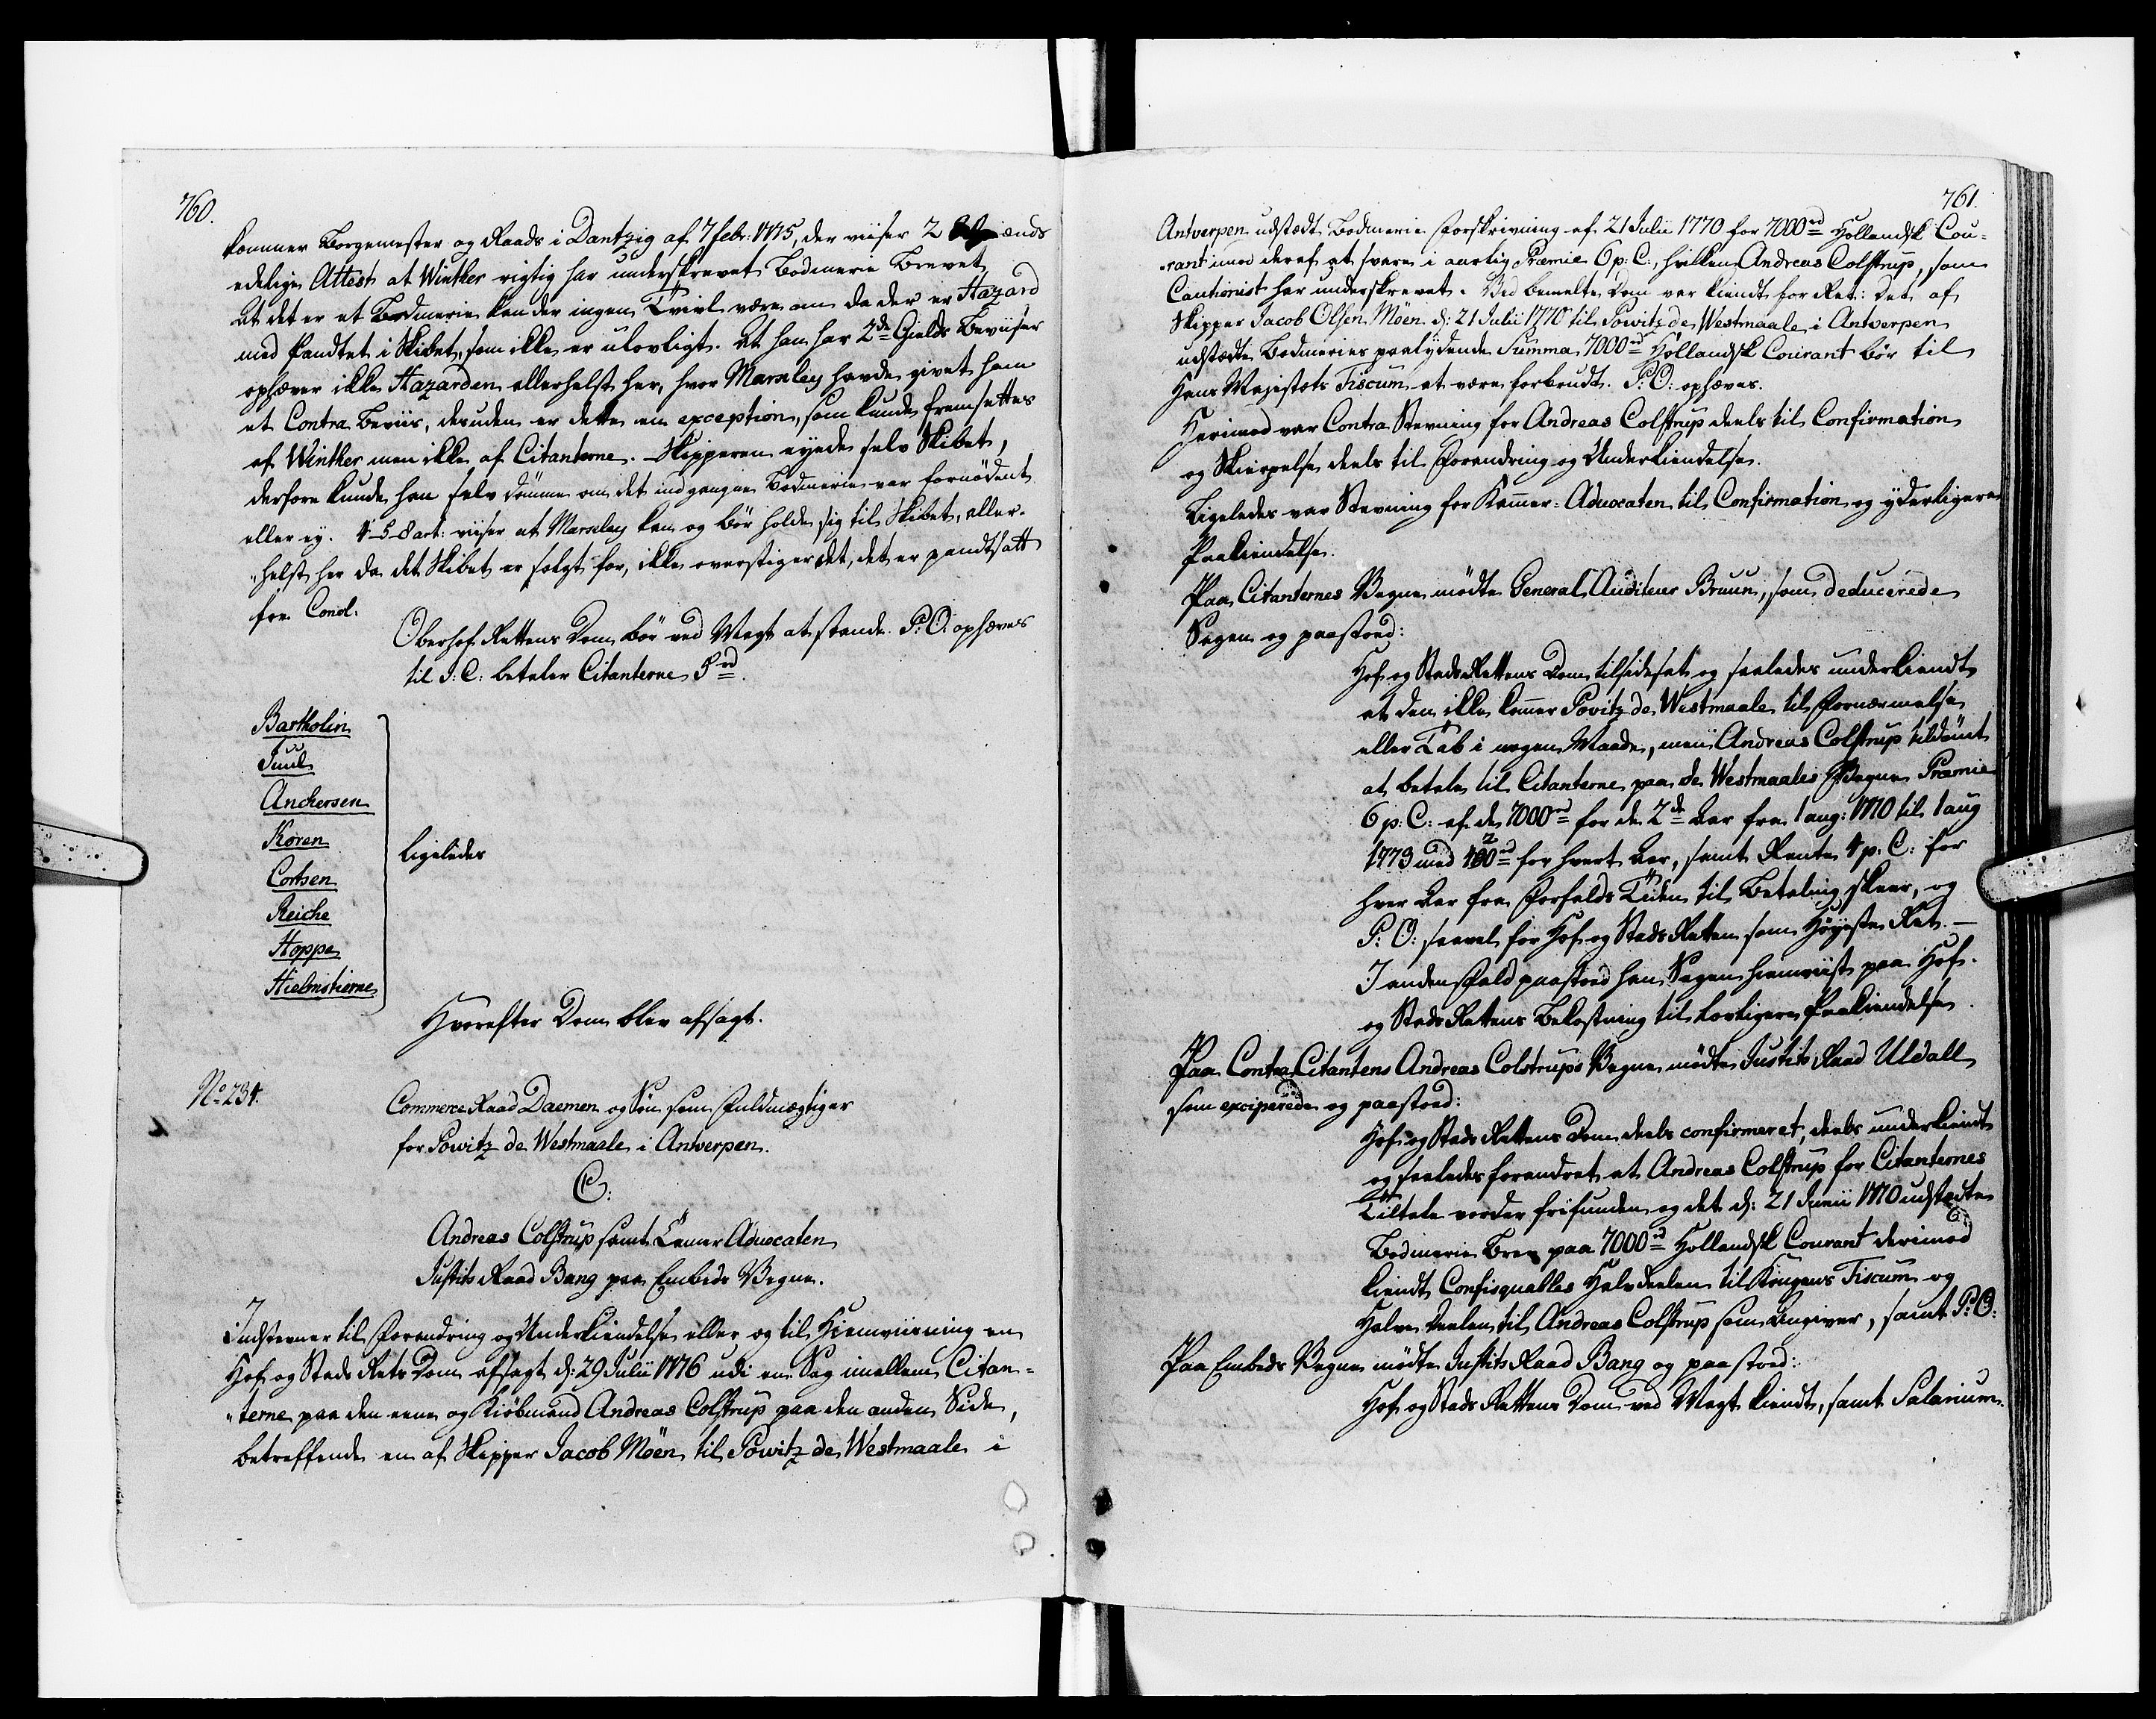 760.
kommer Borgemester og Raads i Dantzig af 7 febr: 1775, der viiser 2 Mænds
edelige Attest at Winther rigtig har underskrevet Bodmerie Brevet,
At det er et Bodmerie kan der ingen Tvivl være om da der er Hazard
med Pandtet i Skibet, som ikke er ulovligt. At han har 2de Gields Beviiser
ophæver ikke Hazarden allerhelst her, hvor Marseley havde givet ham
et Contra Beviis, desuden er dette en exception, som kunde fremsættes
af Winther men ikke af Citanterne. Skipperen eyede selv Skibet,
derfore kunde han selv dømme om det indgangne Bodmerie var fornødent
eller ey. 4-5-8 art: viiser at Marseley kan og bør holde sig til Skibet, aller-
"helst her da det Skibet er solgt for, ikke overstiger det, det er pandtsatt
for. Concl.
Oberhof Rettens Dom bør ved Magt at stande. P: O: ophæves
til J: C: betaler Citanterne 5 rd.
Bartholin
Juul
Anchersen
Koren
Cortsen
Reiche
Hoppe
Hielmstierne
Ligeledes
Hvorefter Dom blev afsagt.
No 234.
Commerce Raad Daemen og Søn som Fuldmægtiger
for Powitz de Westmaale i Antwerpen.
C:
Andreas Colstrup samt Camer Advocaten
Justits Raad Bang paa Embeds Vegne.
Indstevner til Forandring og Underkiendelse eller og til Hiemviisning en
Hof og Stads Rets Dom afsagt d: 29 Julii 1776 udi en Sag imellem Citan-
"terne paa den eene og Kiøbmand Andreas Colstrup paa den anden Side,
betreffende en af Skipper Jacob Möen til Powitz de Westmaale i
761.
Antverpen udstædt Bodmerie Forskrivning af 21 Julii 1770 for 7000 rd Hollandsk Cou-
"rant imod deraf at svare i aarlig Præmie 6 p: C:, hvilken Andreas Colstrup, som
Cautionist har underskrevet. Ved bemelte Dom var kiendt for Ret: Det af
Skipper Jacob Olsen Möen d: 21 Julii 1770 til Powitz de Westmaale i Antverpen
udstædte Bodmeries paalydende Summa 7000 rd Hollandsk Courant bør til
Hans Majestæts Fiscum at være forbrudt. P: O: ophæves.
Herimod var Contra Stevning for Andreas Colstrup deels til Confirmation
og Skierpelse deels til Forandring og Underkiendelse.
Ligeledes var Stevning for Kamer-Advocaten til Confirmation og yderligere
Paakiendelse.
Paa Citanternes Vegne mødte General Auditeur Bruun, som deducerede
Sagen og paastoed:
Hof og Stads Rettens Dom tilsidesat og saaledes underkiendt
at den ikke kommer Powitz de Westmaale til Fornærmelse
eller Tab i nogen Maade, men Andreas Colstrup tildømt
at betale til Citanterne paa de Westmaales Vegne Præmie
6 p: C: af de 7000 rd for de 2de Aar fra 1 aug: 1770 til 1 aug
1773 med 420 rd for hvert Aar, samt Rente 4 p: C: for
hver Aar fra Forfalds Tiden til Betaling skeer, og
P: O: saavel for Hof og Stads Retten som Høyeste Ret. —
I anden Fald paastoed han Sagen hiemviist paa Hof-
og Stads Rettens Bekostning til lovligere Paakiendelse.
Paa Contra Citantens Andreas Colstrups Vegne mødte Justits Raad Uldall
som exciperede og paastoed:
Hof og Stads Rettens Dom deels confirmeret, deels underkiendt
og saaledes forandret at Andreas Colstrup for Citanternes
Tiltale vorder frifunden og det d: 21 Junii 1770 udstædte
Bodmerie Brev paa 7000 rd Hollandsk Courant derimod
kiendt Confisquables Halvdeelen til Kongens Fiscum og
Halve Deelen til Andreas Colstrup som Angiver, samt P: O:
Paa Embeds Vegne mødte Justits Raad Bang og paastoed:
Hof og Stads Rettens Dom ved Magt kiendt, samt Salarium.